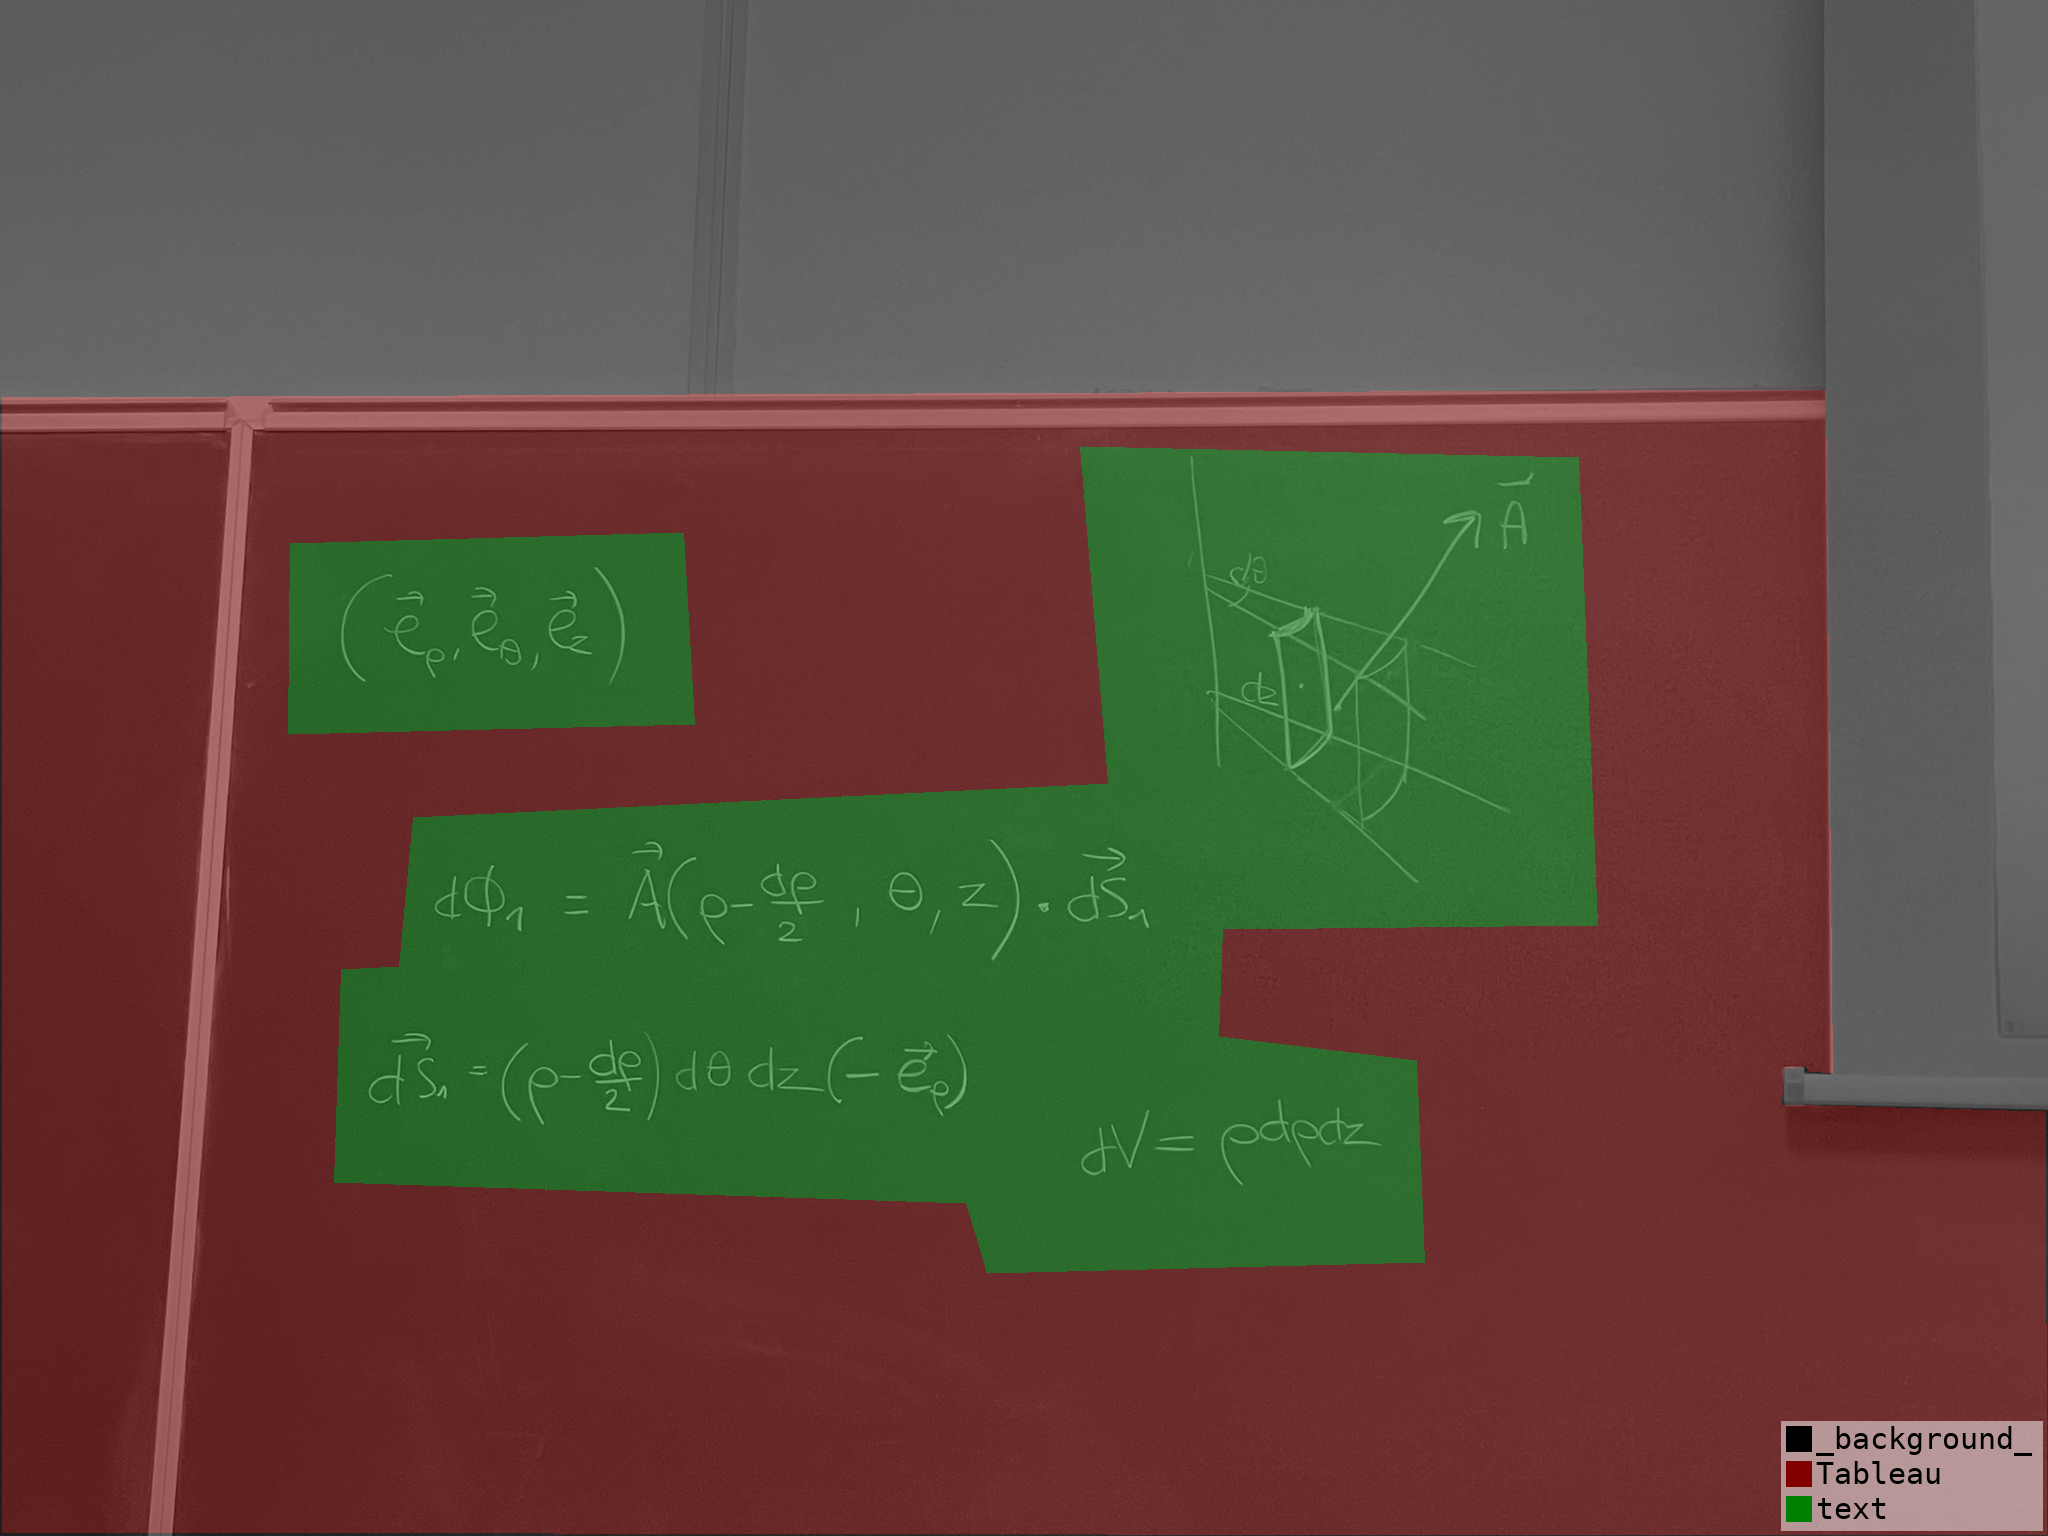 (e⃗ρ, e⃗θ, e⃗z)
A⃗
dθ
dz
dΦ₁ = A⃗(ρ - dρ/2, θ, z) · dS⃗₁
dS⃗₁ = (ρ - dρ/2) dθ dz (-e⃗ρ)
dV = ρdρdz
_background_
Tableau
text